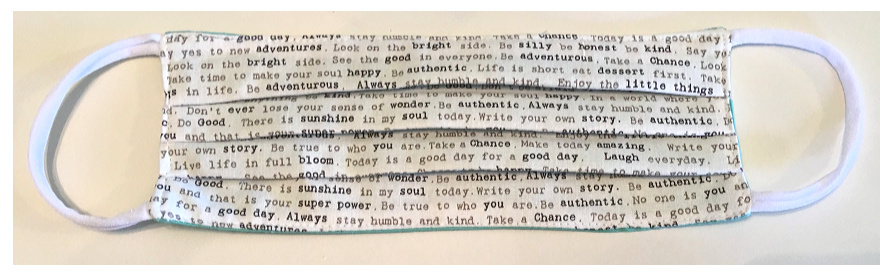 day for a good day. Always stay humble and kind. Take a Chance. Today is a good day
y yes to new adventures. Look on the bright side. Be silly be honest be kind. Say yo
Look on the bright side. See the good in everyone. Be adventurous. Take a Chance. Look
Take time to make your soul happy. Be authentic. Life is short eat dessert first. Take
s in life. Be adventurous Always stay humble and kind. Enjoy the little things
kind. Take time to make your soul happy. In a world where
d. Don't ever lose your sense of wonder. Be authentic. Always stay humble and kind.
. Do Good. There is sunshine in my soul today. Write your own story. Be authentic.
you and that is your super Always stay humble and kind authentic. No one is you
your own story. Be true to who you are. Take a Chance. Make today amazing. Write your
Live life in full bloom. Today is a good day for a good day. Laugh everyday. Li
See the good sense of wonder. Be authentic. Always
Do Good. There is sunshine in my soul today. Write your own story. Be authentic.
ou and that is your super power. Be true to who you are. Be authentic. No one is you an
ay for a good day. Always stay humble and kind. Take a Chance. Today is a good day fo
yes to new adventures kind